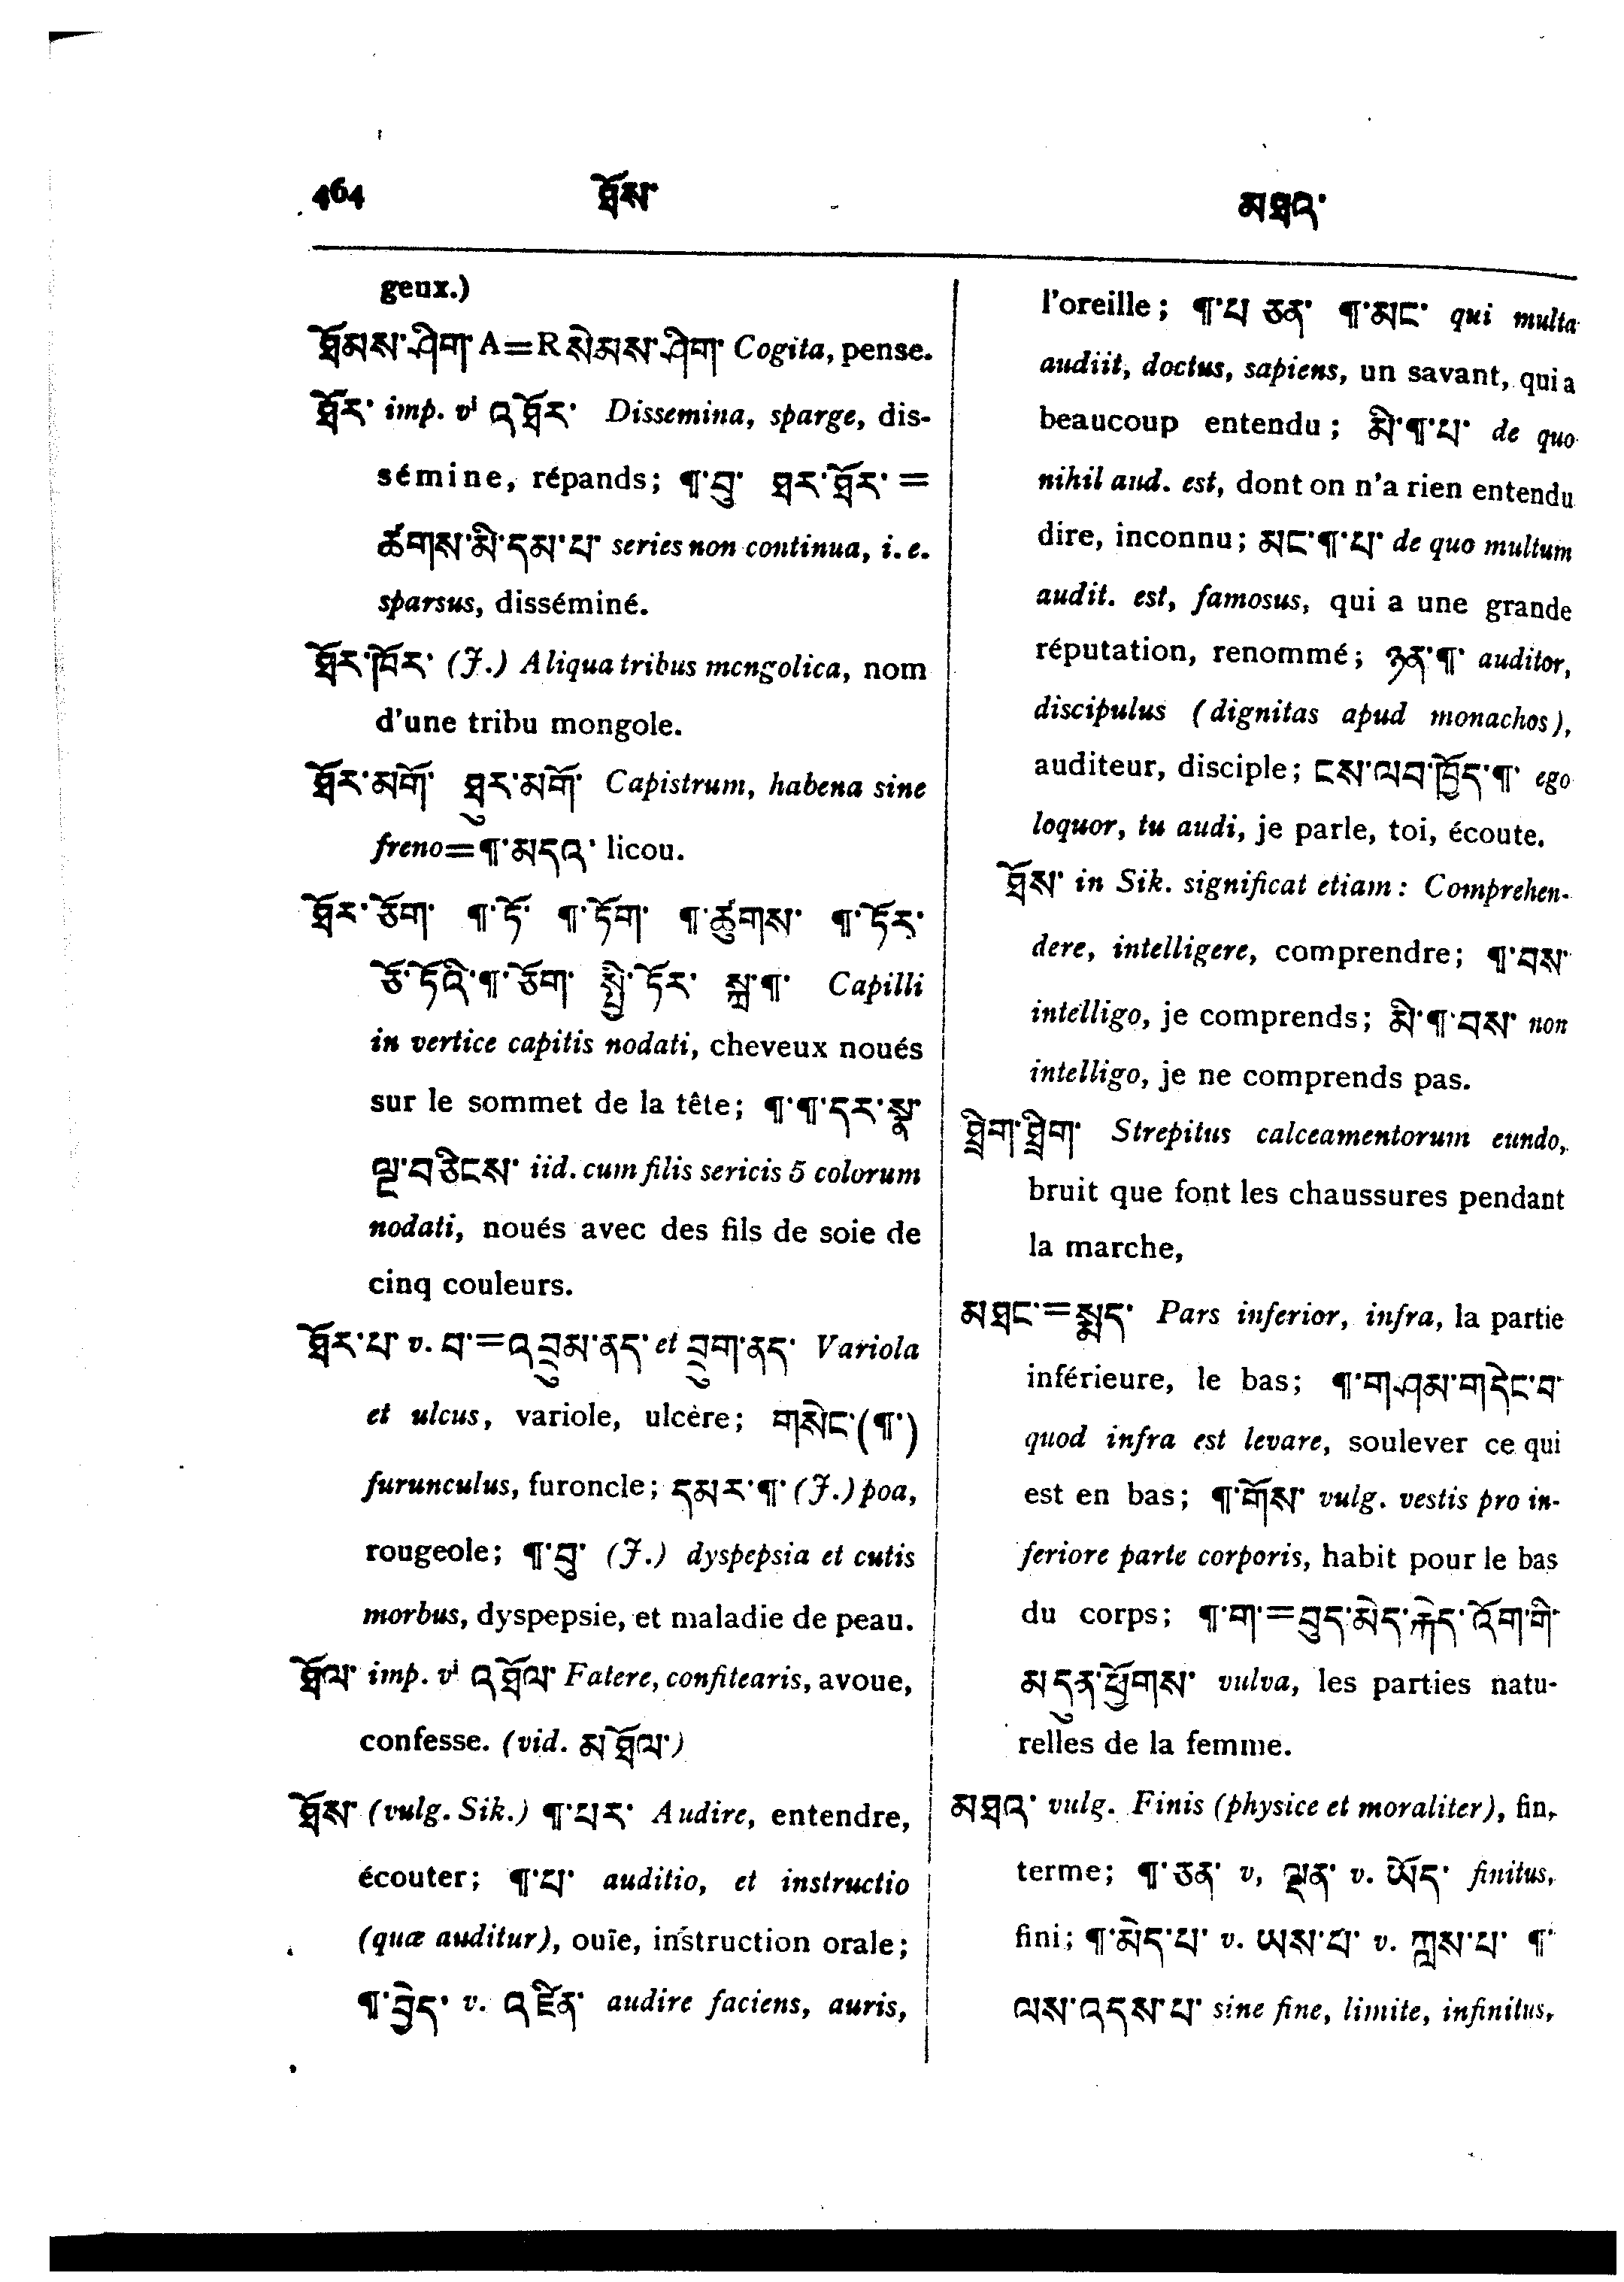 464 ཐོས་ མཐའ་
geux.)
ཐོམས་ཤིག་ A=R སེམས་ཤིག་ Cogita, pense.
ཐོར་ imp. vⁱ འཐོར་ Dissemina, sparge, dis-
sémine, répands; ¶་བུ་ ཐར་ཐོར་ =
ཚགས་མི་དམ་པ་ series non continua, i. e.
sparsus, disséminé.
ཐོར་ཁོར་ (J.) Aliqua tribus mongolica, nom
d'une tribu mongole.
ཐོར་མགོ་ ཐུར་མགོ་ Capistrum, habena sine
freno=¶་མདའ་ licou.
ཐོར་ཅོག་ ¶་ཏོ་ ¶་ཏོག་ ¶་ཚུགས་ ¶་ཏོར་
ཅོ་ཏོའི་¶་ཅོག་ སྤྱི་ཏོར་ སྐྲ་¶་ Capilli
in vertice capitis nodati, cheveux noués
sur le sommet de la tête; ¶་¶་དར་སྣ་
ལྔ་བཅིངས་ iid. cum filis sericis 5 colorum
nodati, noués avec des fils de soie de
cinq couleurs.
ཐོར་པ་ v. བ་=འབྲུམ་ནད་ et བྲུག་ནད་ Variola
et ulcus, variole, ulcère; གསེང་(¶་)
furunculus, furoncle; དམར་¶་ (J.) poa,
rougeole; ¶་བུ་ (J.) dyspepsia et cutis
morbus, dyspepsie, et maladie de peau.
ཐོལ་ imp. vⁱ འཐོལ་ Fatere, confitearis, avoue,
confesse. (vid. མཐོལ་)
ཐོས་ (vulg. Sik.) ¶་པར་ Audire, entendre,
écouter; ¶་པ་ auditio, et instructio
(quæ auditur), ouïe, instruction orale;
¶་བྱེད་ v. འཛིན་ audire faciens, auris,
l'oreille; ¶་པ་ཅན་ ¶་མང་ qui multa
audiit, doctus, sapiens, un savant, qui a
beaucoup entendu; མི་¶་པ་ de quo
nihil aud. est, dont on n'a rien entendu
dire, inconnu; མང་¶་པ་ de quo multum
audit. est, famosus, qui a une grande
réputation, renommé; ཉན་¶་ auditor,
discipulus (dignitas apud monachos),
auditeur, disciple; ངས་ལབ་ཁྱོད་¶་ ego
loquor, tu audi, je parle, toi, écoute.
ཐོས་ in Sik. significat etiam: Comprehen-
dere, intelligere, comprendre; ¶་བས་
intelligo, je comprends; མི་¶་བས་ non
intelligo, je ne comprends pas.
ཐྲིག་ཐྲིག་ Strepitus calceamentorum eundo,
bruit que font les chaussures pendant
la marche,
མཐང་=སྨད་ Pars inferior, infra, la partie
inférieure, le bas; ¶་ག་ཤམ་གདེང་བ་
quod infra est levare, soulever ce qui
est en bas; ¶་གོས་ vulg. vestis pro in-
feriore parte corporis, habit pour le bas
du corps; ¶་ག་=བུད་མེད་རྐེད་འོག་གི་
མདུན་ཕྱོགས་ vulva, les parties natu-
relles de la femme.
མཐའ་ vulg. Finis (physice et moraliter), fin,
terme; ¶་ཅན་ v, ལྡན་ v. ཡོད་ finitus,
fini; ¶་མེད་པ་ v. ཡས་པ་ v. ཀླས་པ་ ¶་
ལས་འདས་པ་ sine fine, limite, infinitus,